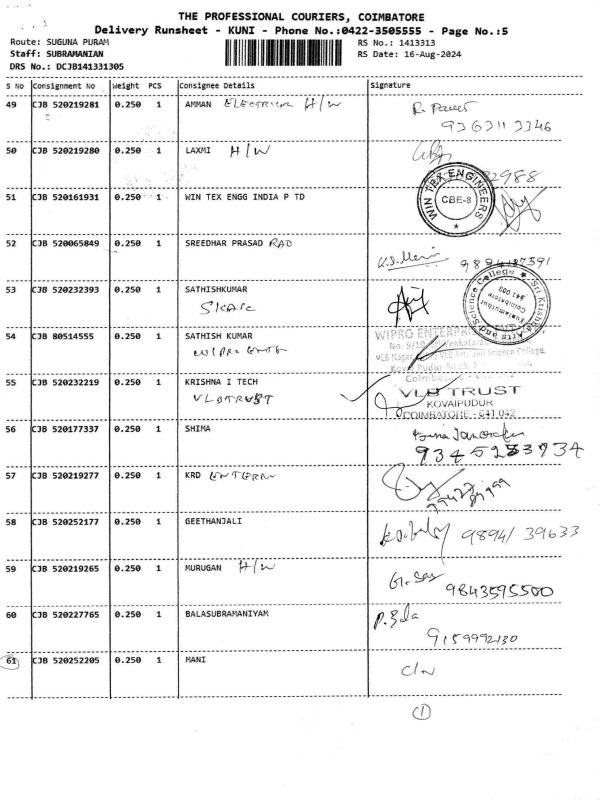 THE PROFESSIONAL COURIERS, COIMBATORE
Delivery Runsheet - KUNI - Phone No.:0422-3505555 - Page No.:5
Route: SUGUNA PURAM
RS No.: 1413313
Staff: SUBRAMANIAN
RS Date: 16-Aug-2024
DRS No.: DCJB141331305
S No Consignment No Weight PCS Consignee Details Signature
49 CJB 520219281 0.250 1 AMMAN ELECTRICAL H/W
50 CJB 520219280 0.250 1 LAXMI H/W
51 CJB 520161931 0.250 1 WIN TEX ENGG INDIA P TD
WIN TEX ENGINEERS
CBE-8
52 CJB 520065849 0.250 1 SREEDHAR PRASAD RAO
53 CJB 520232393 0.250 1 SATHISHKUMAR
SKASC
Sri Krishna Arts and Science College
Kuniamuthur
Coimbatore
641 008
54 CJB 80514555 0.250 1 SATHISH KUMAR
WIPRO ENTE
WIPRO ENTERPRIS
Coimbatore
55 CJB 520232219 0.250 1 KRISHNA I TECH
VLBTRUST
VLB TRUST
KOVAIPUDUR
COIMBATORE - 641 042
56 CJB 520177337 0.250 1 SHIMA
57 CJB 520219277 0.250 1 KRD ENTERP
58 CJB 520252177 0.250 1 GEETHANJALI
9894139633
59 CJB 520219265 0.250 1 MURUGAN H/W
9843595500
60 CJB 520227765 0.250 1 BALASUBRAMANIYAM
9159992130
61 CJB 520252205 0.250 1 MANI
1